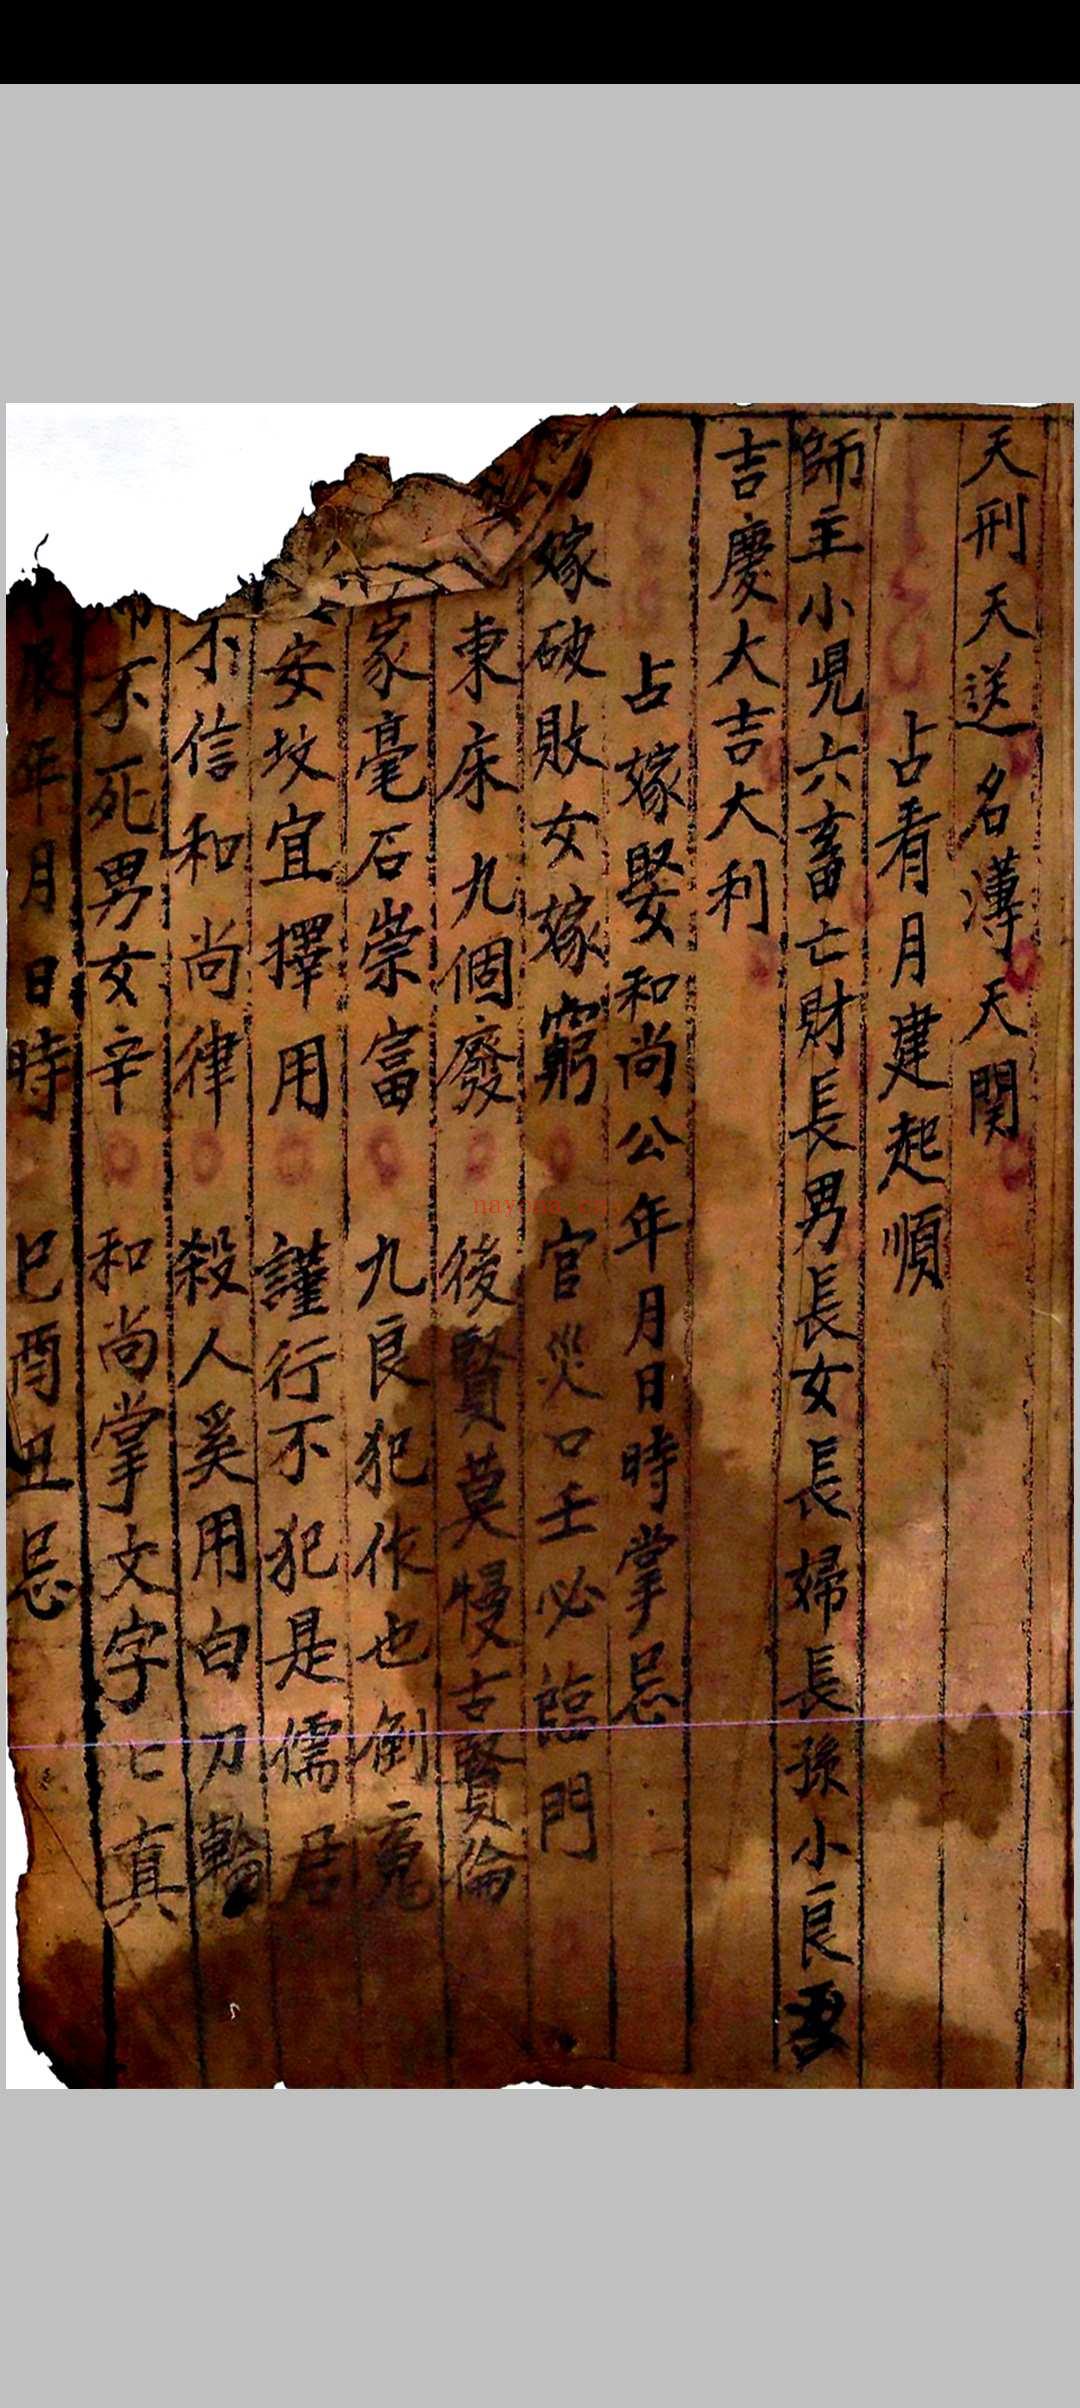 天刑天送名薄天関
占看月建起順
師主小児六畜亡財長男長女長婦長孫小良
吉慶大吉大利
占嫁娶和尚公年月日時掌忌
嫁破敗女嫁窮 官災口舌必臨門
東床九個廢 後賢莫慢古賢倫
家毫石崇富 九良犯作也
安坟宜擇用 謹行不犯是儒
不信和尚律 殺人奚用白刀
不死男女辛 和尚掌文字亡真
年月日時 巳酉丑忌
nayona.cn